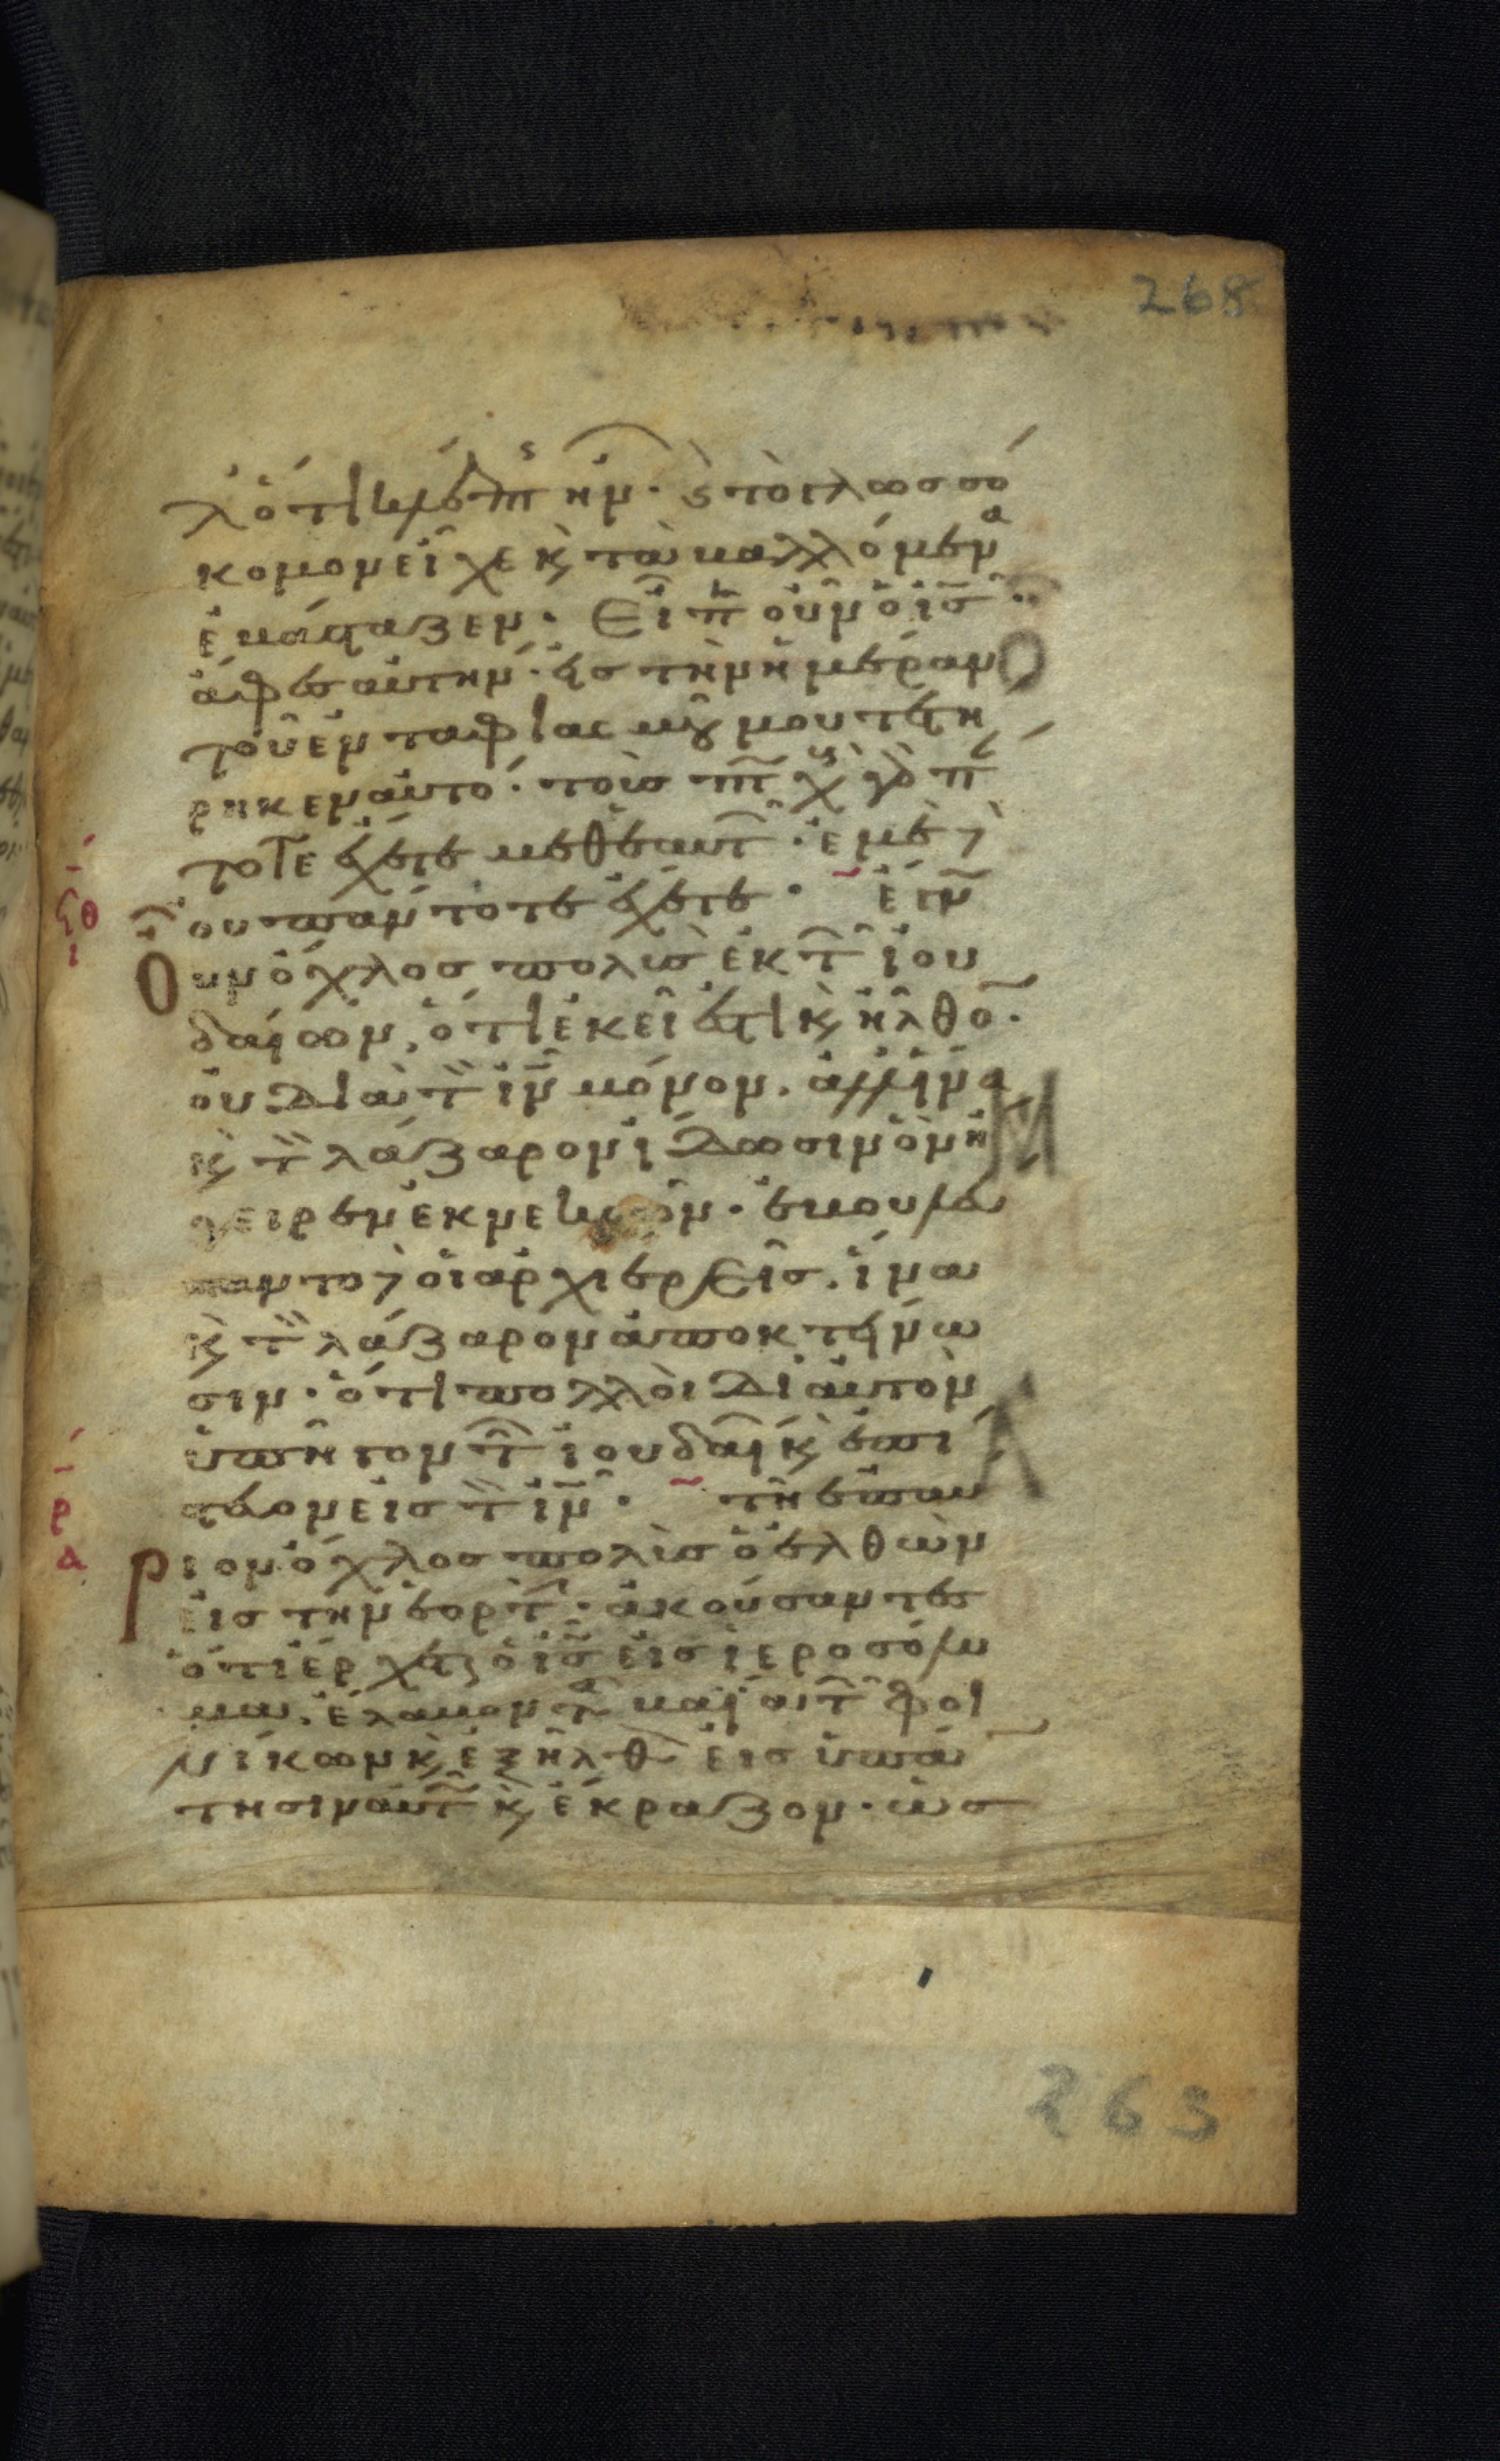 268
λ ὅτι κλέπτης ἦν· καὶ τὸ γλωσσό
κομον εἶχε κ τὰ βαλλόμενα
ἐβάσταζεν. Εἶπ οὖν ὁ ις
ἄφες αὐτήν· εἰς τὴν ἡμέραν
τοῦ ἐνταφιασμοῦ μου τετή
ρηκεν αὐτό· τοὺς πτ χοὺς γὰρ π
τοτε ἔχετε μεθ ἑαυτ· ἐμὲ δὲ
οὐ πάντοτε ἔχετε· ἔγν
ϟθ
ι
Ουν ὄχλος πολὺς ἐκ τ ἰου
δαίων, ὅτι ἐκεῖ ἐστι κ ἦλθο·
οὐ διὰ τ ιν μόνον. ἀλλ ἵνα
κ τ λάζαρον ἴδωσιν ὃν ἤ
γειρεν ἐκ νεκρῶν· ἐβουλεύ
σαντο δὲ οἱ ἀρχιερεῖς. ἵνα
κ τ λάζαρον ἀποκτείνω
σιν· ὅτι πολλοὶ δι αὐτὸν
ὑπῆγον τ ἰουδαί κ ἐπί
στευον εἰς τ ιν· τῇ ἐπαύ
ρ
α
Ριον ὄχλος πολὺς ὁ ἐλθὼν
εἰς τὴν ἑορτ· ἀκούσαντες
ὅτι ἔρχεται ὁ ις εἰς ἱεροσόλυ
μα, ἔλαβον τὰ βαΐα τ φοι
νίκων κ ἐξῆλθ εἰς ὑπάν
τησιν αὐτ κ ἔκραζον· ὡσ
263